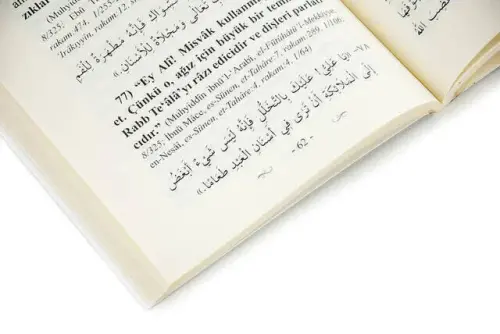 zıklar
8/325; Ebû
rakam:474, 1/255
Irâkıyyîn, rakam:12
فَإِنَّهُ مَطْهَرَةٌ لِلْفَمِ
تَعَالَى وَمَجْلَاةٌ لِلْأَسْنَانِ.»
77) "Ey Alî! Misvâk kullanma
et. Çünkü o, ağız için büyük bir temi
Rabb Te'âlâ'yı râzı edicidir ve dişleri parlat
cıdır." (Muhyiddîn ibnü'l-'Arabî, el-Fütûhâtü'l-Mekkiyye,
8/325; İbnü Mâce, es-Sünen, et-Tahâre:7, rakam:289, 1/106;
en-Nesâî, es-Sünen, et-Tahâre:4, rakam:4, 1/64)
٧٨- «يَا عَلِيُّ! عَلَيْكَ بِالتَّخَلُّلِ فَإِنَّهُ لَيْسَ شَيْءٌ أَبْغَضُ
إِلَى الْمَلَائِكَةِ أَنْ تَرَى فِي أَسْنَانِ الْعَبْدِ طَعَامًا.»
- 62 -